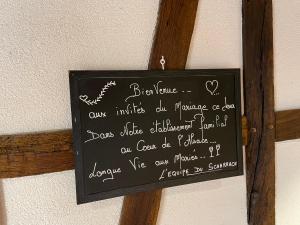 BienVenue ...
aux invités du Mariage ce soir
Dans Notre établissement familial
au Coeur de l'Alsace...
Longue Vie aux Mariés.. !!
L'EQUIPE DU SCHARRACH